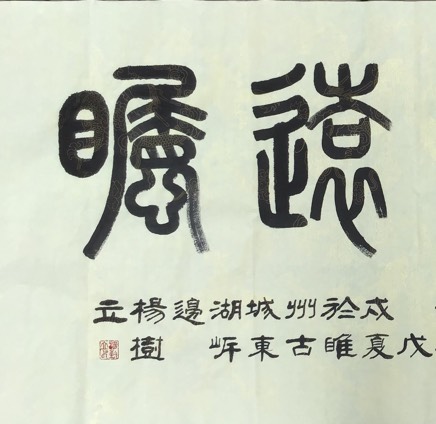 遠
矚
戊
戌夏
於睢
州古
城東
湖岸
邊
楊樹
立